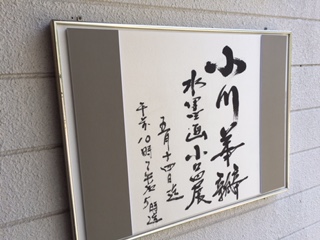 小川華瓣
水墨画小品展
五月十四日迄
午前10時〜午后5時迄